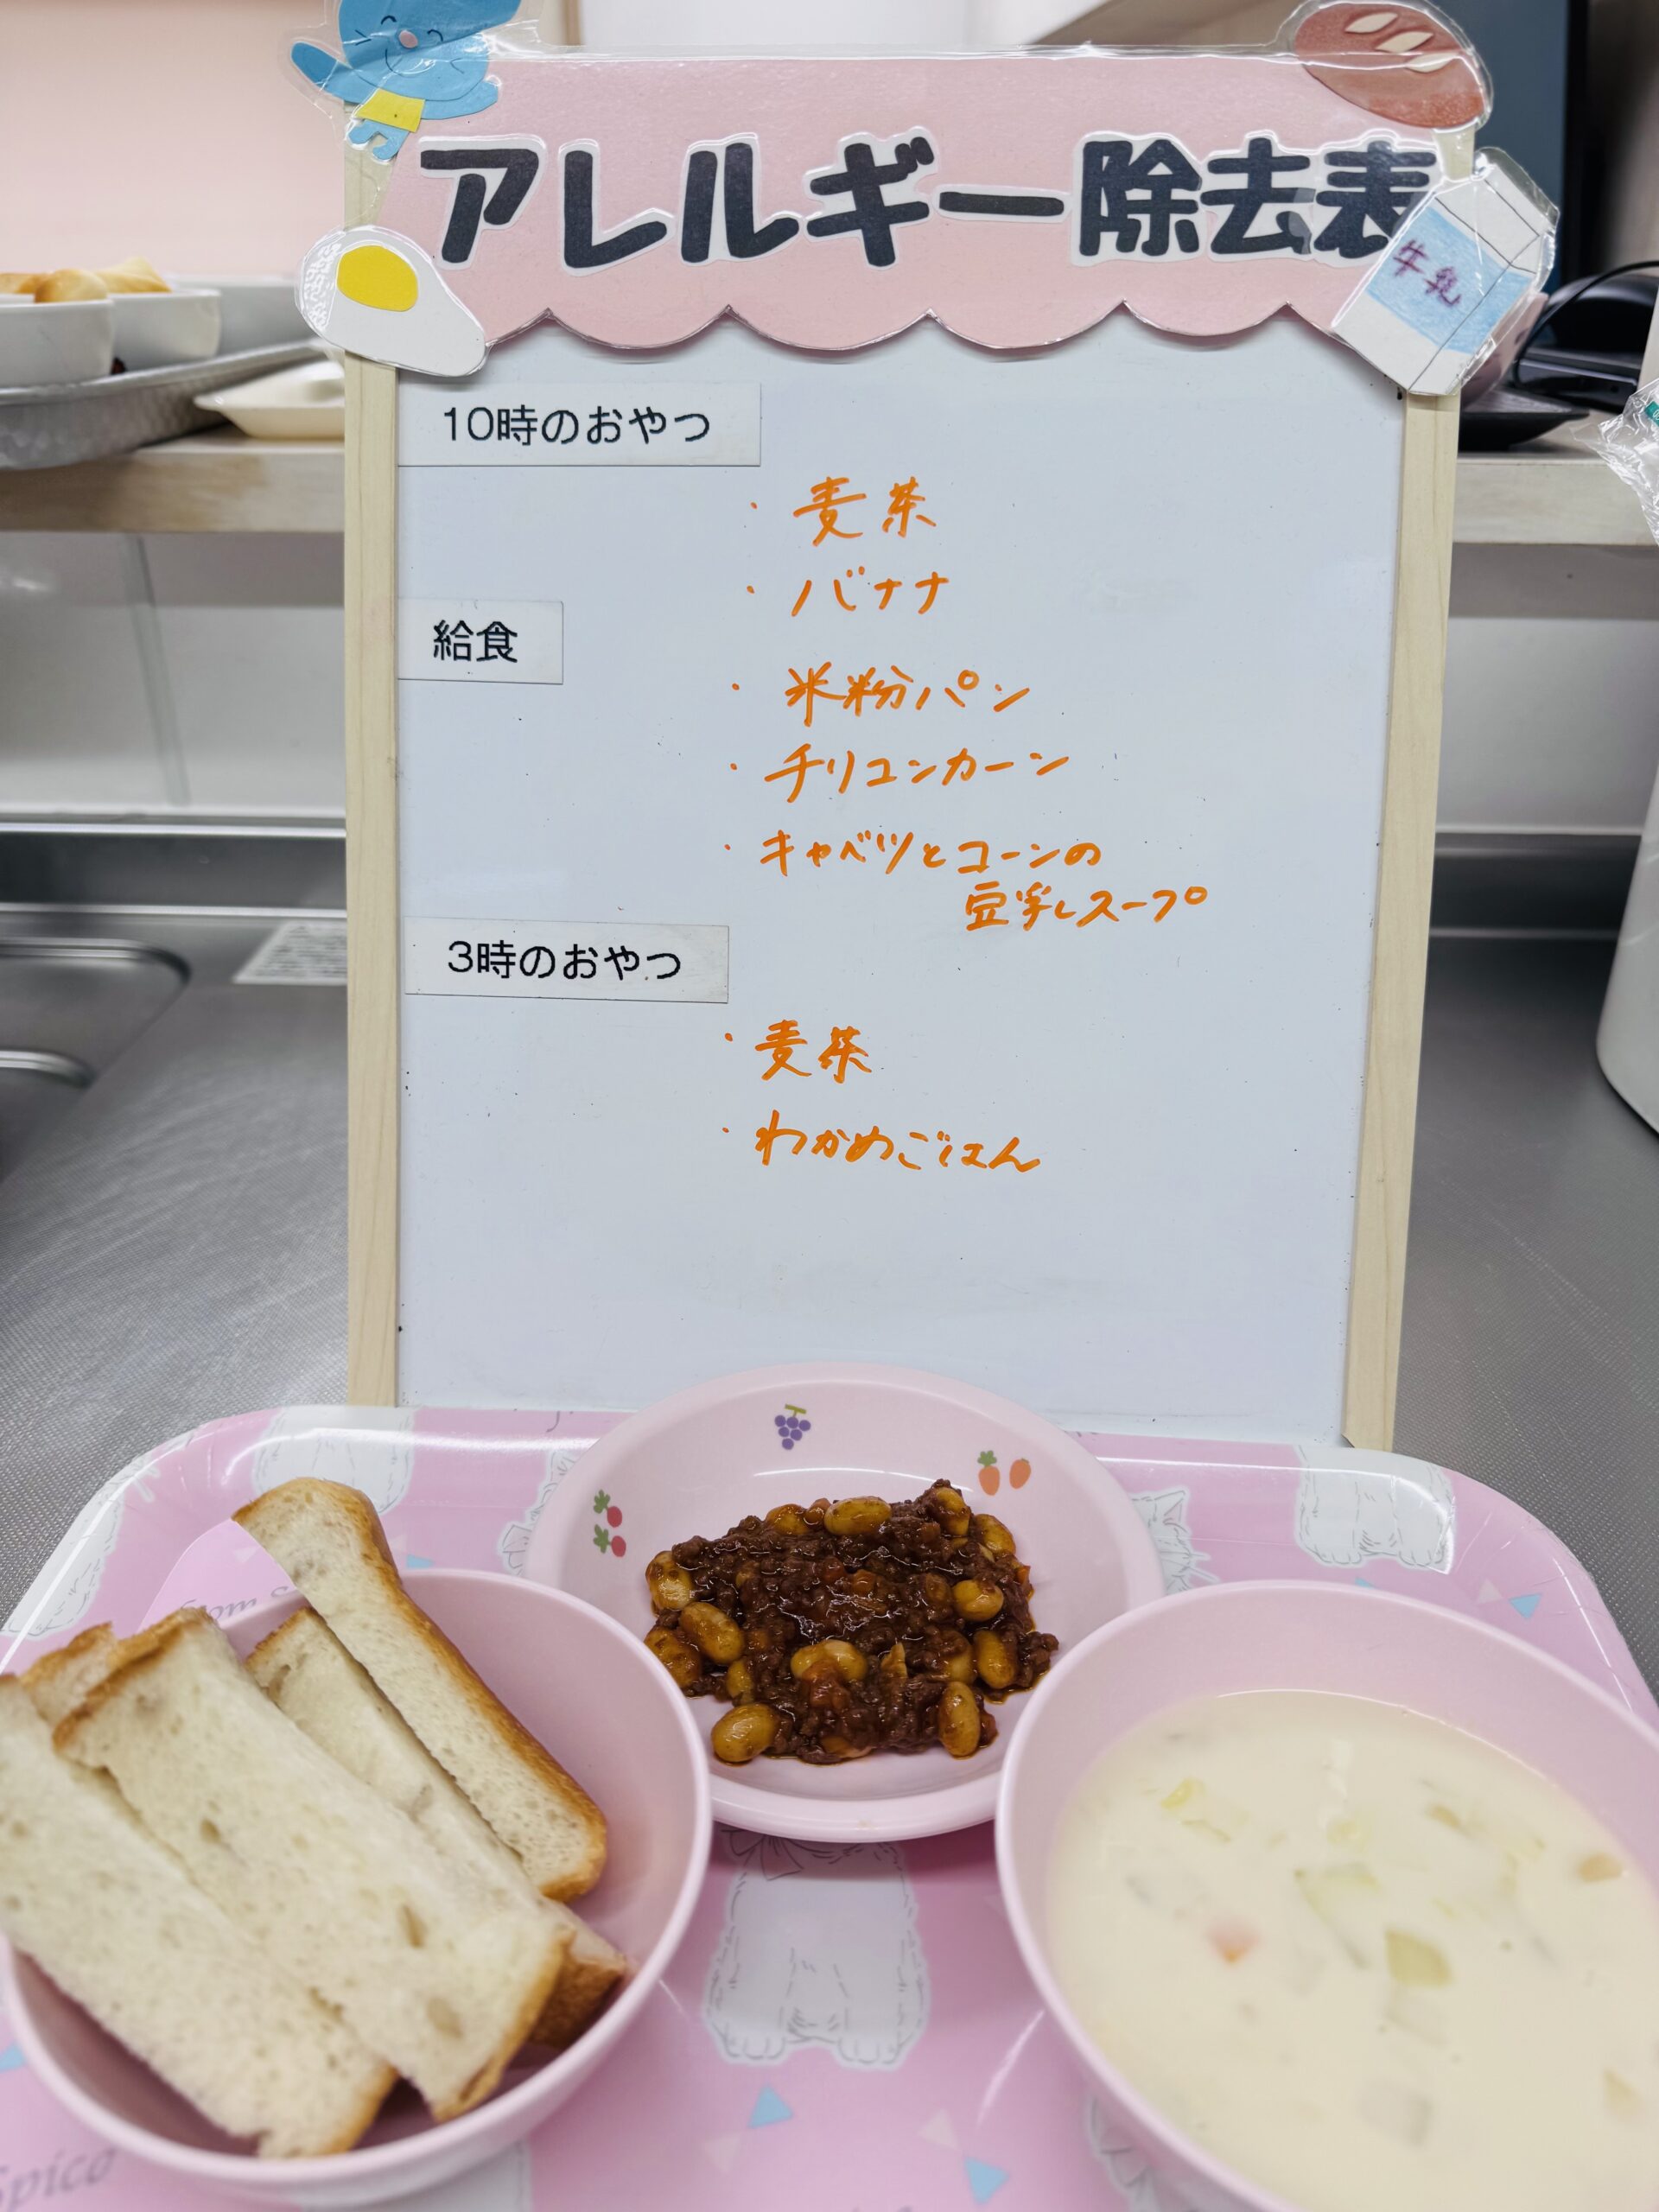 アレルギー除去表
牛乳
10時のおやつ
・麦茶
・バナナ
給食
・米粉パン
・チリコンカーン
・キャベツとコーンの
豆乳スープ
3時のおやつ
・麦茶
・わかめごはん
Spico